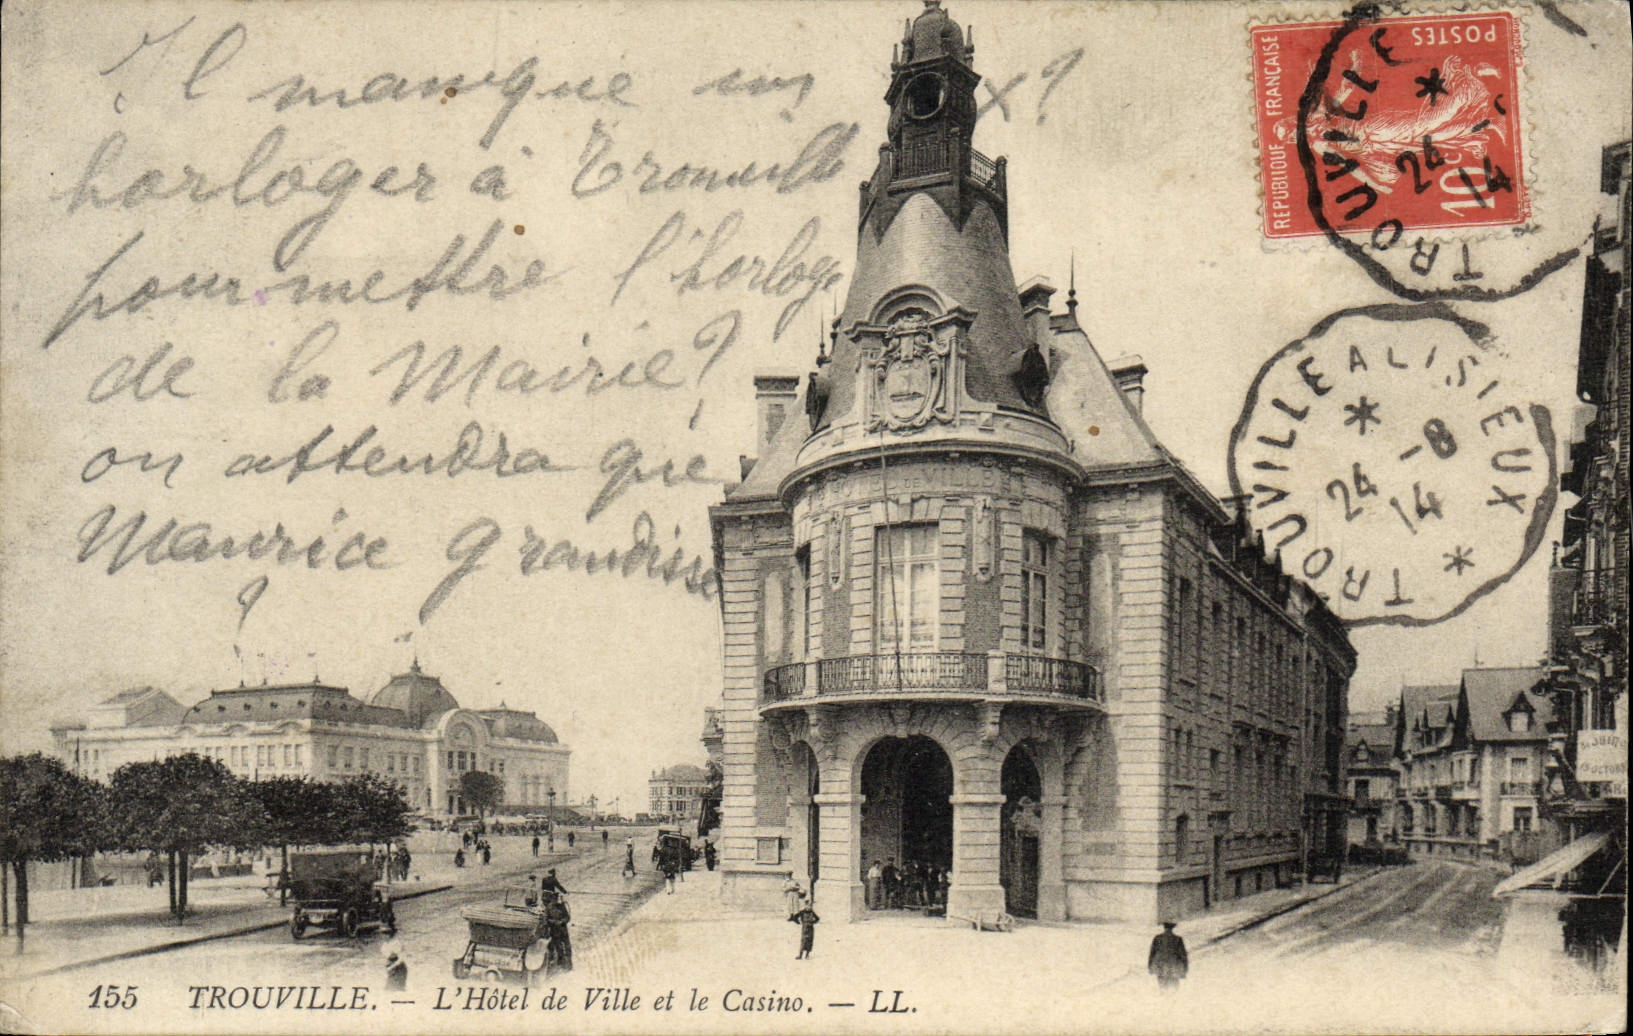 Il manque un x ?
horloger à Trouville
pour mettre l'horloge
de la Mairie ?
on attendra que
Maurice grandisse
?
REPUBLIQUE FRANÇAISE
POSTES
10c
TROUVILLE
*
24 -
14
TROUVILLE A LISIEUX
*
-8
24
14
*
HOTEL DE VILLE
155 TROUVILLE. — L'Hôtel de Ville et le Casino. — LL.